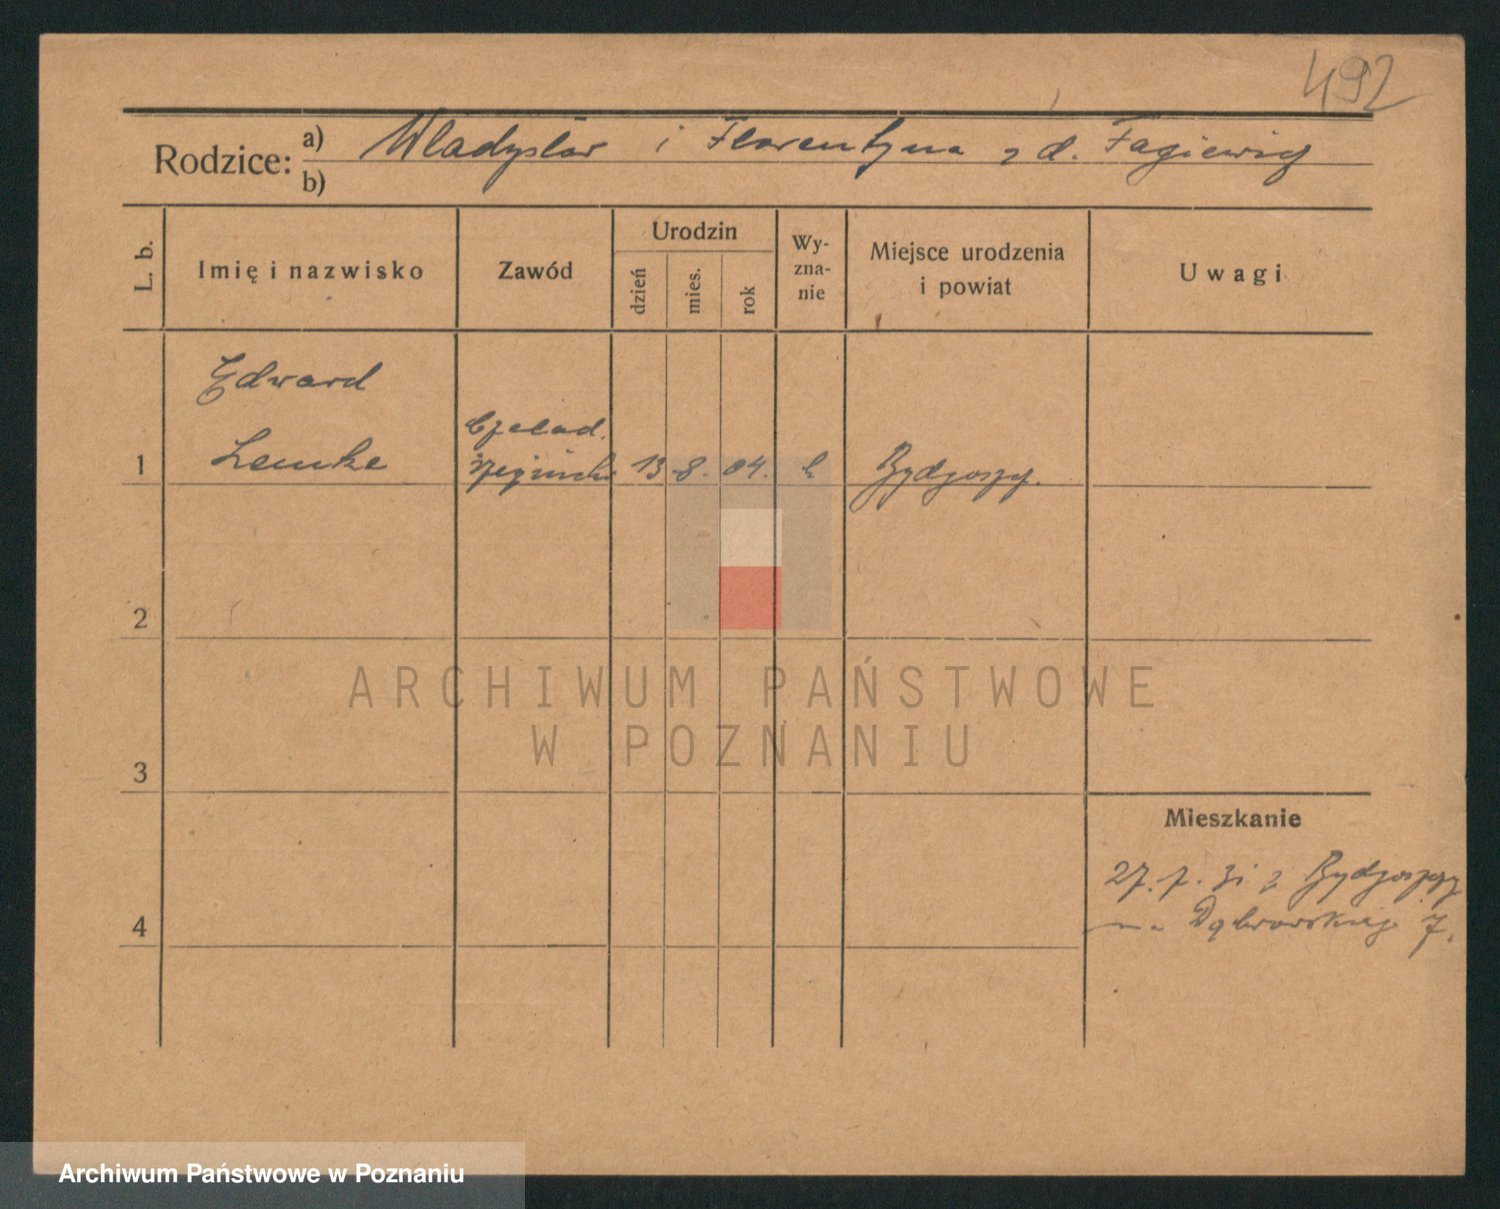 492
Rodzice: a) Władysław i Florentyna z d. Fagiewicz
b)
L. b.
Imię i nazwisko
Zawód
Urodzin
dzień
mies.
rok
Wy-
zna-
nie
Miejsce urodzenia
i powiat
Uwagi
Edward
Lemke
Czelad.
1
13 8. 04.
Bydgoszcz.
2
3
4
Mieszkanie
27. 7. 31 z Bydgoszczy
na Dąbrowskiego 7.
ARCHIWUM PAŃSTWOWE
W POZNANIU
Archiwum Państwowe w Poznaniu